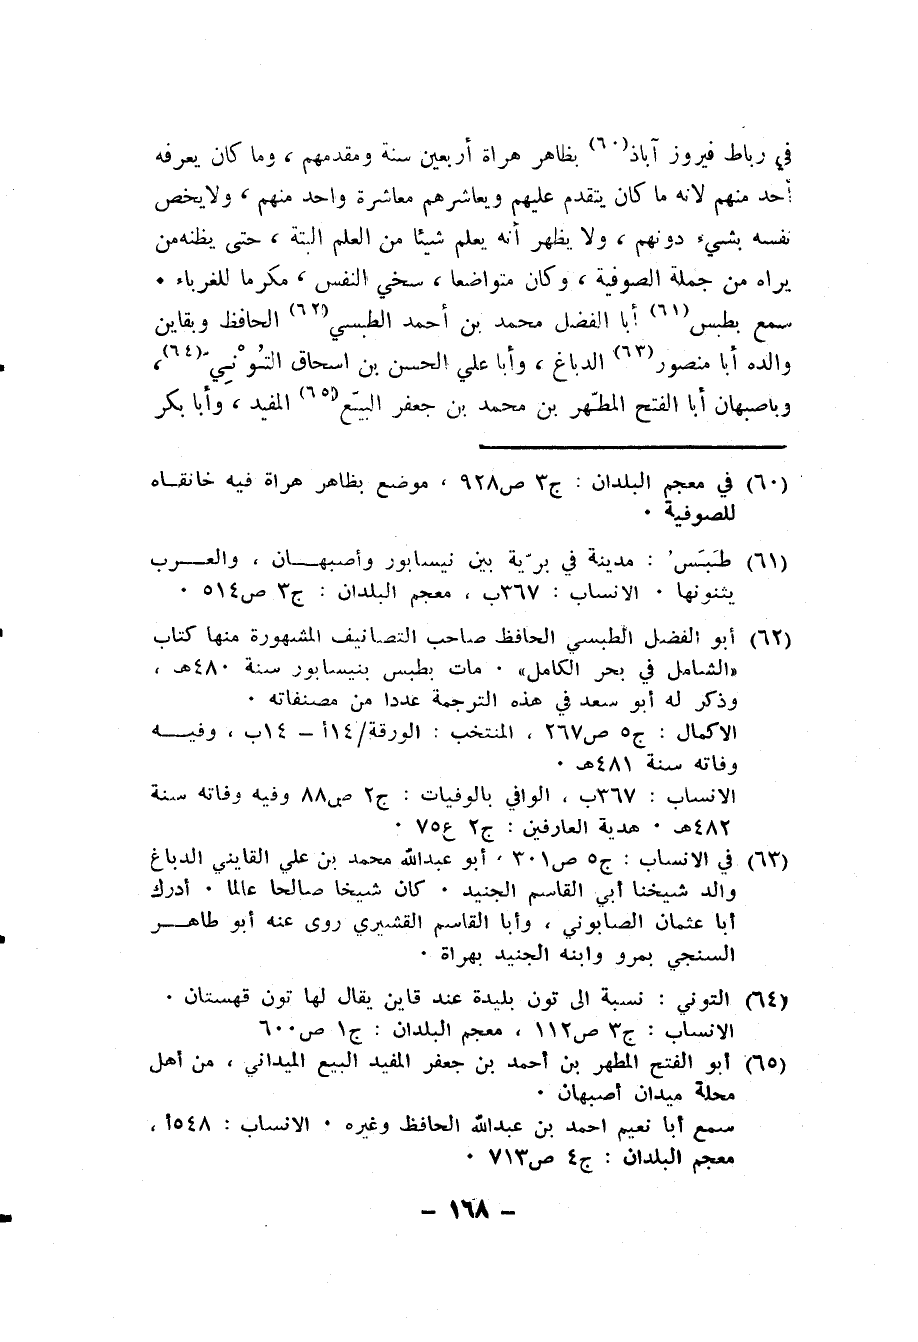 في رباط فيروز آباذ(٦٠) بظاهر هراة أربعين سنة ومقدمهم ، وما كان يعرفه
أحد منهم لانه ما كان يتقدم عليهم ويعاشرهم معاشرة واحد منهم ، ولايخص
نفسه بشيء دونهم ، ولا يظهر أنه يعلم شيئا من العلم البتة ، حتى يظنه من
يراه من جملة الصوفية ، وكان متواضعا ، سخي النفس ، مكرما للغرباء .
سمع بطبس(٦١) أبا الفضل محمد بن أحمد الطبسي(٦٢) الحافظ وبقاين
والده أبا منصور(٦٣) الدباغ ، وأبا علي الحسن بن اسحاق التُوْنِي(٦٤)،
وباصبهان أبا الفتح المطهّر بن محمد بن جعفر البيّع(٦٥) المفيد ، وأبا بكر
(٦٠) في معجم البلدان : ج٣ ص٩٢٨ ، موضع بظاهر هراة فيه خانقاه
للصوفية .
(٦١) طبَسَ : مدينة في برّية بين نيسابور وأصبهان ، والعرب
يثنونها . الانساب : ٣٦٧ب ، معجم البلدان : ج٣ ص٥١٤ .
(٦٢) أبو الفضل الطبسي الحافظ صاحب التصانيف المشهورة منها كتاب
«الشامل في بحر الكامل» . مات بطبس بنيسابور سنة ٤٨٠هـ ،
وذكر له أبو سعد في هذه الترجمة عددا من مصنفاته .
الاكمال : ج٥ ص٢٦٧ ، المنتخب : الورقة/١٤أ – ١٤ب ، وفيه
وفاته سنة ٤٨١هـ .
الانساب : ٣٦٧ب ، الوافي بالوفيات : ج٢ ص٨٨ وفيه وفاته سنة
٤٨٢هـ . هدية العارفين : ج٢ ع٧٥ .
(٦٣) في الانساب : ج٥ ص٣٠١ ، أبو عبدالله محمد بن علي القايني الدباغ
والد شيخنا أبي القاسم الجنيد . كان شيخا صالحا عالما . أدرك
أبا عثمان الصابوني ، وأبا القاسم القشيري روى عنه أبو طاهر
السنجي بمرو وابنه الجنيد بهراة .
(٦٤) التوني : نسبة الى تون بليدة عند قاين يقال لها تون قهستان .
الانساب : ج٣ ص١١٢ ، معجم البلدان : ج١ ص٦٠٠
(٦٥) أبو الفتح المطهر بن أحمد بن جعفر المفيد البيع الميداني ، من أهل
محلة ميدان أصبهان .
سمع أبا نعيم احمد بن عبدالله الحافظ وغيره . الانساب : ٥٤٨أ ،
معجم البلدان : ج٤ ص٧١٣ .
– ١٦٨ –